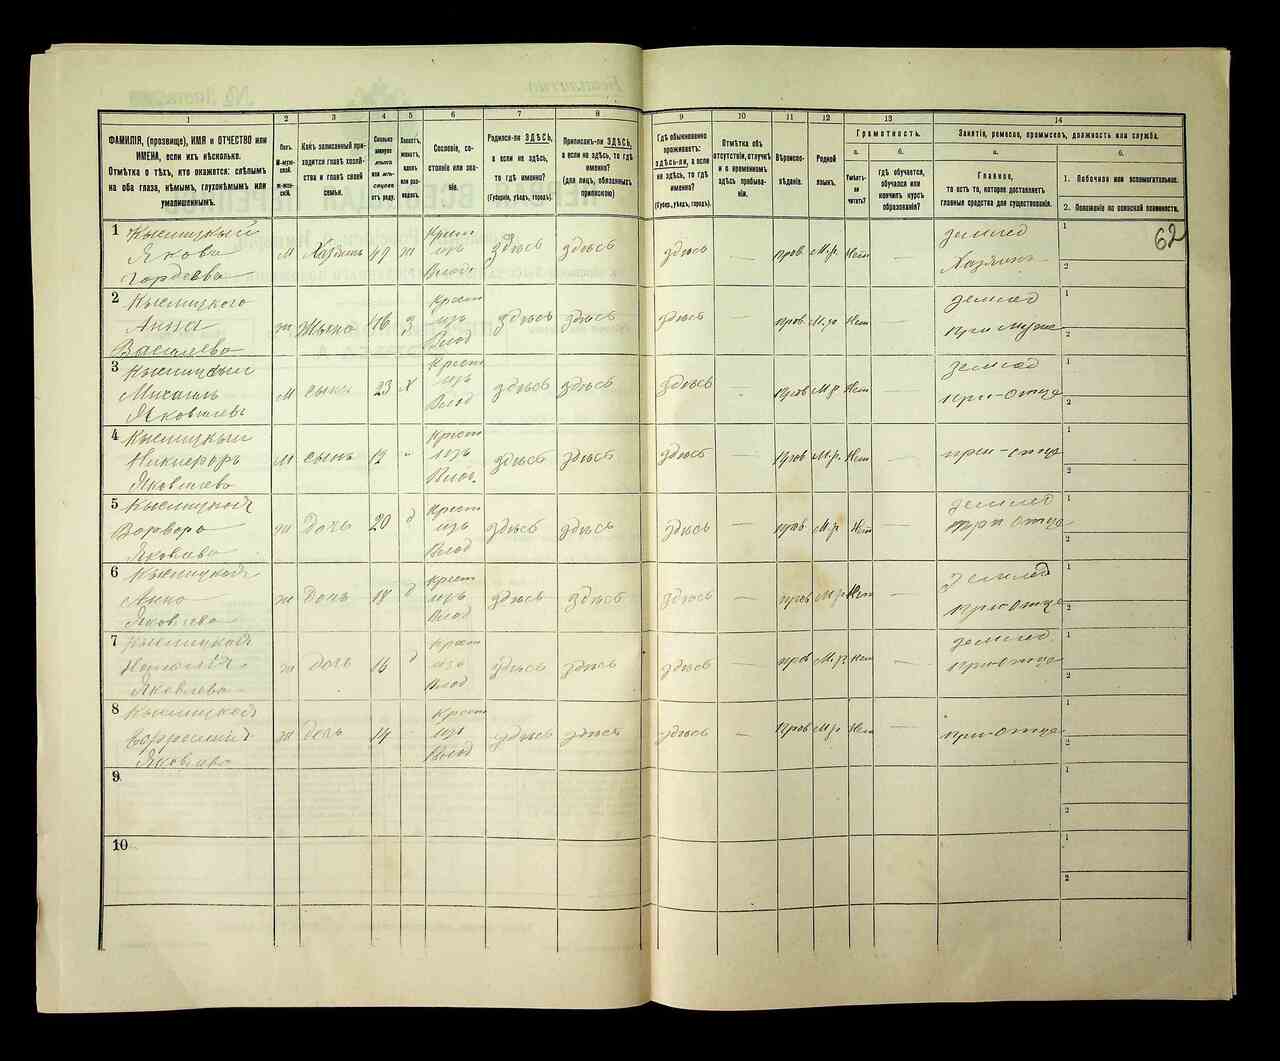 1
2
3
4
5
6
7
8
9
10
11
12
13
14
ФАМИЛІЯ, (прозвище), ИМЯ и ОТЧЕСТВО или
ИМЕНА, если ихъ нѣсколько.
Отмѣтка о тѣхъ, кто окажется: слѣпымъ
на оба глаза, нѣмымъ, глухонѣмымъ или
умалишеннымъ.
Полъ.
М-муж-
ской.
Ж-жен-
скій.
Какъ записанный при-
ходится главѣ хозяй-
ства и главѣ своей
семьи.
Сколько
минуло
лѣтъ
или мѣ-
сяцевъ
отъ роду.
Холостъ,
женатъ,
вдовъ
или раз-
веденъ.
Сословіе, со-
стояніе или зва-
ніе.
Родился-ли ЗДѢСЬ,
а если не здѣсь,
то гдѣ именно?
(Губернія, уѣздъ, городъ).
Приписанъ-ли ЗДѢСЬ,
а если не здѣсь, то гдѣ
именно?
(для лицъ, обязанныхъ
припискою)
Гдѣ обыкновенно
проживаетъ:
здѣсь-ли, а если
не здѣсь, то гдѣ
именно?
(Губер., уѣздъ, городъ).
Отмѣтка объ
отсутствіи, отлучкѣ
и о временномъ
здѣсь пребыва-
ніи.
Вѣроиспо-
вѣданіе.
Родной
языкъ.
Грамотность.
а.
Умѣетъ-
ли
читать?
б.
гдѣ обучается,
обучался или
кончилъ курсъ
образованія?
Занятія, ремесло, промыселъ, должность или служба.
а.
Главное,
то есть то, которое доставляетъ
главныя средства для существованія.
б.
1. Побочное или вспомогательное.
2. Положеніе по воинской повинности.
62
1 Кыслицкый
Якова
Гордеева
М Хазяинъ 49 ж
Крест
изъ
Влад
здѣсь здѣсь здѣсь — прав М.р. Нет —
землед
Хазяинъ
1
2
2 Кыслицкого
Анна
Василева
ж Жына 46 з
Крест
изъ
Влад
здѣсь здѣсь здѣсь — прав М.р Нет —
землед
при Муже
1
2
3 Кыслицкый
Михаилъ
Яковлевъ
М сынъ 23 х
Крест
изъ
Влад
здѣсь здѣсь здѣсь — прав М.р. Нет —
землед
при-отце
1
2
4 Кыслицкый
Никиѳоръ
Яковлева
М сынъ 12 -
Крест
изъ
Влад.
здѣсь здѣсь здѣсь — прав М.р. Нет —
при-отце
1
2
5 Кыслицкой
Ворворо
Яковлева
ж дочь 20 д
Крест
изъ
Влад
здѣсь здѣсь здѣсь — прав М.р Нет —
землед
при отце
1
2
6 Кыслицкой
Анно
Яковлева
ж дочь 18 д
Крест
изъ
Влад
здѣсь здѣсь здѣсь — прав М.р Нет —
землед
при-отце
1
2
7 Кыслицкой
Яковлева
ж дочь 16 д
Крест
изъ
Влад
здѣсь здѣсь здѣсь — прав М.р Нет —
землед
при отце
1
2
8 Кыслицкой
Яковлева
ж дочь 14
Крест
изъ
Влад
здѣсь здѣсь здѣсь — прав М.р Нет —
при-отце
1
2
9
1
2
10
1
2